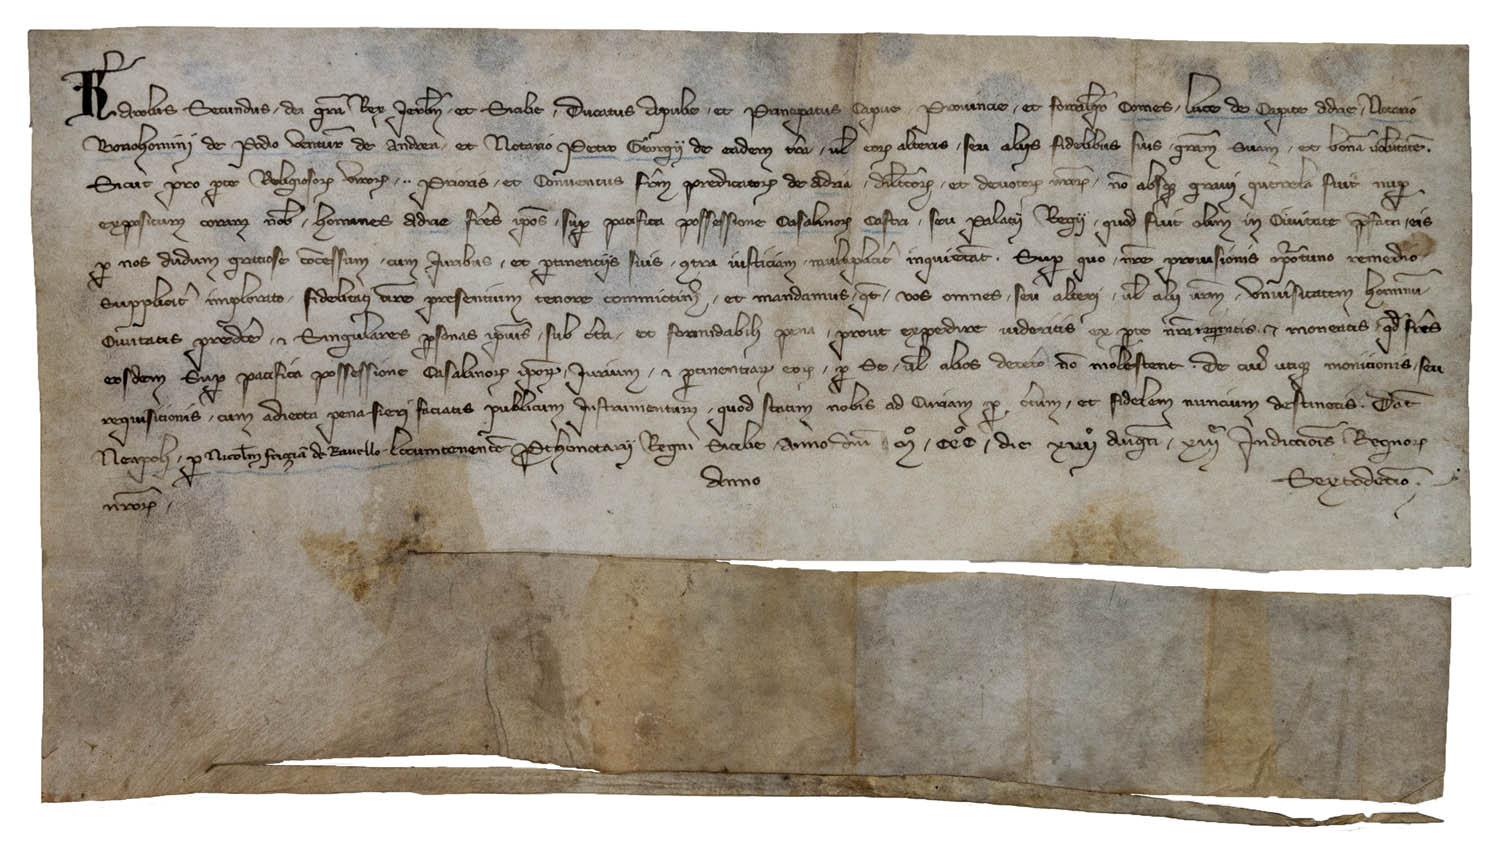 Karolus Secundus dei gra Rex Jerlm et Sicilie, Ducatus Apulie et Principatus Capue Provincie et forcalquerii Comes, luce de Capite Adrie, Notario
Bonohomini de Podio de Andrea et Notario Petro Georgii de eadem tra, vl eorum alteris, seu aliis fidelibus suis, gram suam et bonam voluntate.
Sicut pro pte Religiosor viror .. Prioris et Conventus frm predicatorum de Adria, dilcor et devotor nror, no absque gravi querela fuit nup
expositum coram nob, homines Adrie fres ipos sup pacifica possessione Casalinor Castri seu Palacii Regii quod fuit olim in Civitate pfata eis
p nos dudum graciose concessum cum Juribus et ptinentiis suis, contra iusticiam, multiplicit inquietant. Sup quo nre provisionis oportuno remedio
supplicit implorato, fidelitati vre presentium tenore commictim et mandamus qt vos omnes seu alteri vl alii vrm, Universitatem hominum
Civitatis predce et Singulares psonas ipius sub cta et formidabili pena prout expedire videritis ex pte nra requiratis et moneatis qd fres
eosdem Sup pacifica possessione Casalinor ipor, Jurium et ptinentiar eor, p Se vl alios decero no molestent. De cui utique monicionis seu
requisicionis, cum adiecta pena fieri faciatis publicum Instrumentum quod statim nobis ad Curiam p ctum et fidelem nuncium destinetis. Dat
Neapoli p Nicolm friczia de Ravello locumtenente Pthonotarii Regni Sicilie Anno dni M CCC die XVII Augusti XIII Indiccionis Regnor
nror Anno Sextodecimo.